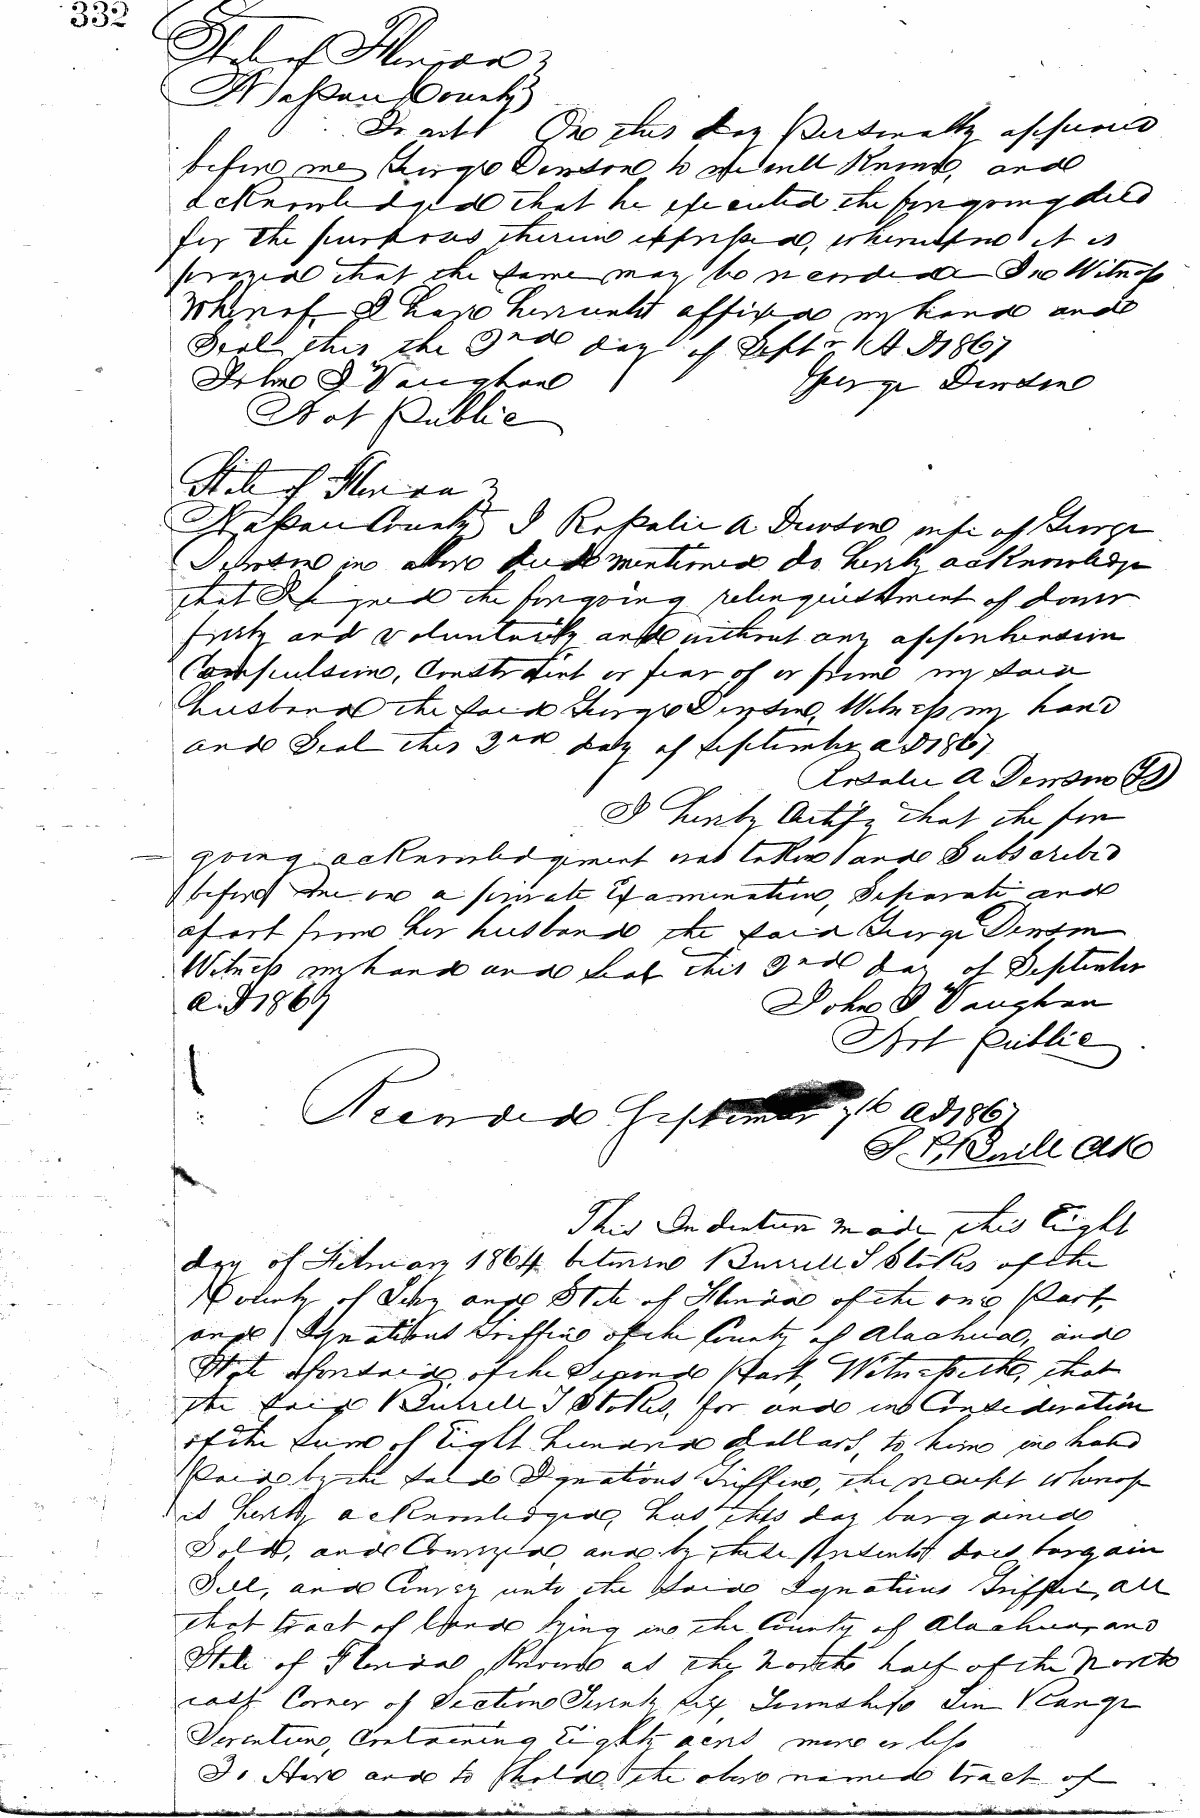 332
State of Florida
Nassau County
To wit On this day personally appeared
before me George Dewson to me well known, and
acknowledged that he executed the foregoing deed
for the purposes therein expressed, wherefore it is
prayed that the same may be recorded In Witness
Whereof I have hereunto affixed my hand and
Seal this the 3rd day of Septr A D 1867
John J Vaughan George Dewson
Not Public
State of Florida
Nassau County I Rosalie A Dewson wife of George
Dewson in above deed mentioned do hereby acknowledge
that I signed the foregoing relinquishment of dower
freely and voluntarily and without any apprehension
Compulsion, Constraint or fear of or from my said
husband the said George Dewson, Witness my hand
and Seal this 3rd day of September A D 1867
Rosalie A Dewson LS
I hereby Certify that the fore
going acknowledgment was taken and Subscribed
before me in a private Examination, Separate and
apart from her husband the said George Dewson
Witness my hand and Seal this 3rd day of September
A.D 1867 John J Vaughan
Not Public
Recorded September 7th AD 1867
Clk
This Indenture made this Eight
day of February 1864 between Burrell T Stokes of the
County of Levy and State of Florida of the one Part,
and Ignatious Griffin of the County of Alachua, and
State aforesaid of the Second Part, Witnesseth, that
the said Burrell T Stokes, for and in Consideration
of the sum of Eight hundred dollars, to him in hand
Paid by the said Ignatious Griffin, the receipt whereof
is hereby acknowledged, has this day bargained
Sold, and Conveyed and by these presents does bargain
Sell, and Convey unto the said Ignatious Griffin, all
that tract of land lying in the County of Alachua, and
State of Florida Known as the North half of the North
east Corner of Section Twenty Six, Township Ten Range
Seventeen, Containing Eighty acres more or less
To Have and to hold the above named tract of